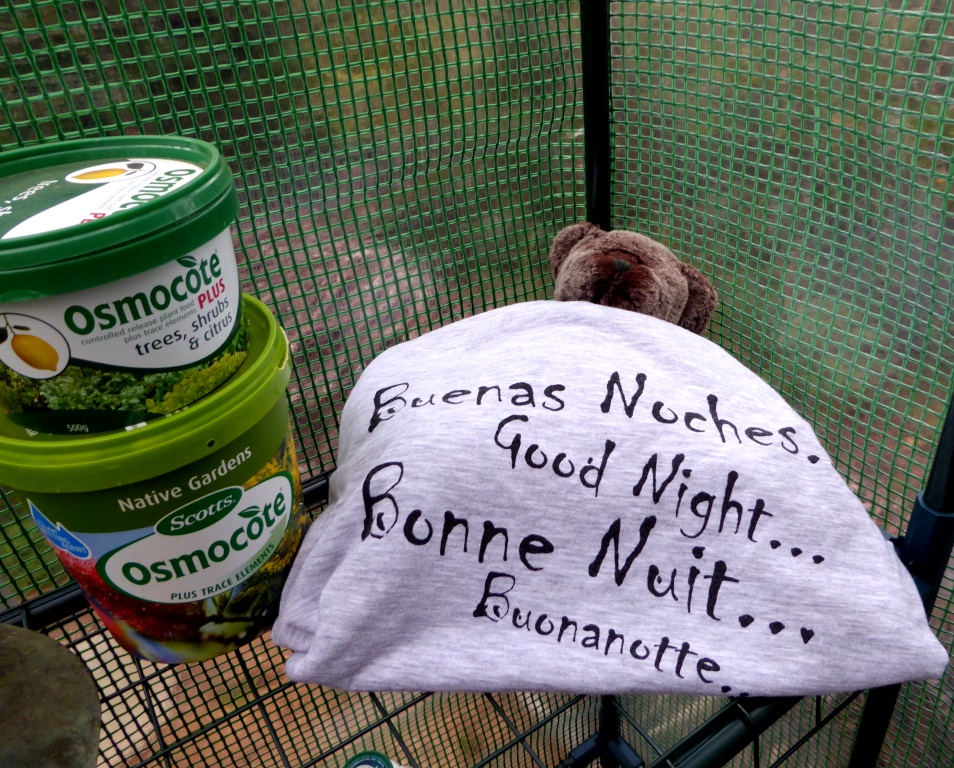 Osmoc
trees, s
Osmocote
controlled release plant food
plus trace elements PLUS
trees, shrubs
& citrus
500g
Native Gardens
Scotts
Osmocote
PLUS TRACE ELEMENTS
Buenas Noches.
Good Night...
Bonne Nuit...
Buonanotte...